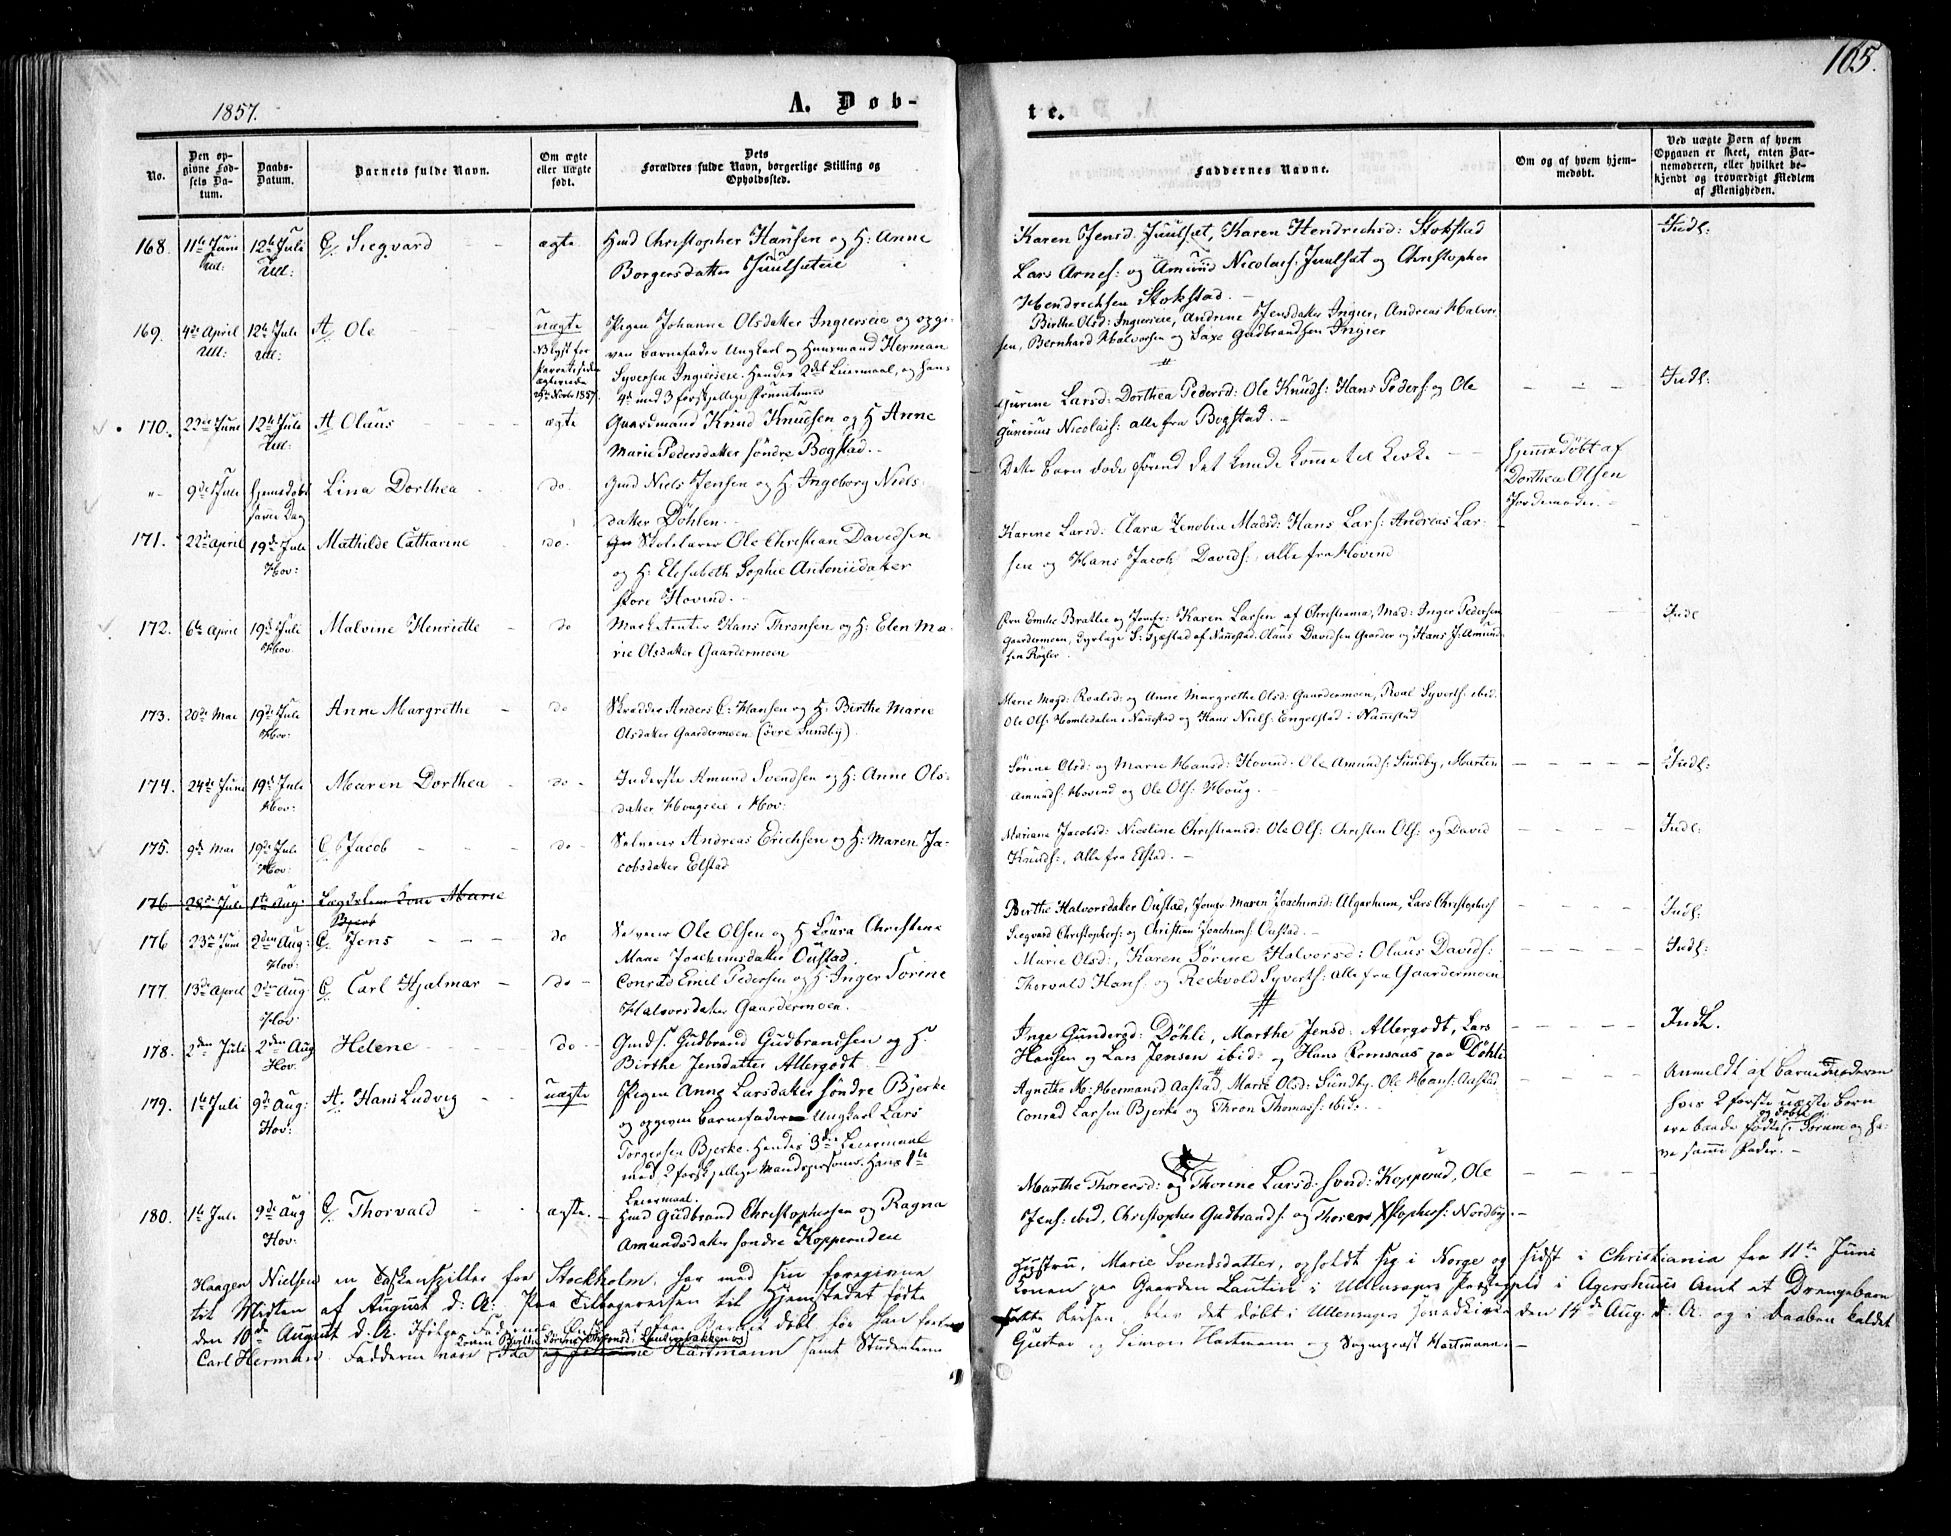 105.
1857.
A. Døb-
te.
No.
Den op-
givne Fød-
sels Da-
tum.
Daabs-
Datum.
Barnets fulde Navn.
Om ægte
eller uægte
født.
Dets
Forældres fulde Navn, borgerlige Stilling og
Opholdssted.
Faddernes Navne.
Om og af hvem hjem-
medøbt.
Ved uægte Børn af hvem
Opgaven er skeet, enten Bar-
nemoderen, eller hvilket be-
kjendt og troværdigt Medlem
af Menigheden.
168. 11te Juni 12te Juli Siegvard - - ægte Hmd Christopher Hansen og H: Anne
Ull: Ull: Borgersdatter Juulseteie
Karen Jensd. Juulset, Karen Hendrichsd: Stokstad Indl:
Lars Arnes: og Amund Nicolais: Juulset og Christopher
Hendrichsen Stokstad. -
169. 4de April 12te Juli A Ole - - uægte Pigen Johanne Olsdatter Ingierseie og opgi-
Ull: Ull: ven Barnefader Ungkarl og Huusmand Herman
Syversen Ingierseie. Hendes 2det Leiermaal, og hans
4de med 3 forskjellige Fruentimer
Birthe Olsd: Ingierseie, Andrine Jensdatter Ingier, Andreas Halvor-
sen, Bernhard Halvorsen og Saxe Gudbrandsen Ingier
170. 23de Juni 12te Juli A Olaus - - - ægte Gaardmand Knud Knudsen og H Anne
Ull: Marie Pedersdatter søndre Bogstad. -
Gurine Larsd: Dorthea Pedersd: Ole Knuds: Hans Peders: og Ole - - - Indl:
Gunerius Nicolais: alle fra Bogstad. -
" 9de Juli hjemdøbt Lina Dorthea - do Gmd Niels Jensen og H. Ingeborg Niels-
samme Dag datter Døhlen. -
Dette Barn døde forend det kunde komme til Kirke - - hjemmedøbt af
Dorthea Olsen
Jordemoder. -
171. 22de April 19de Juli Mathilde Catharine - do. Skolelærer Ole Christian Davidsen
Hov: og H: Elisabeth Sophie Antoniidatter
store Hovind. -
Karine Larsd: Clara Zenobia Madsd: Hans Lars: Andreas Lar-
sen og Hans Jacob Davids:, alle fra Hovind
172. 6te April 19de Juli Malvine Henriette - do Marketenter Hans Thronsen og H: Elen Ma-
Hov rie Olsdatter Gaardermoen
Emilie Bratlie og Jomfr: Karen Larsen af Christiania, Mad: Inger Pedersen - - Indl
Gaardermoen, af Nannestad, Olaus Davidsen Gaarder og Hans J: Amund-
sen Røgler.
173. 20de Mai 19de Juli Anne Margrethe - do Skrædder Anders C: Hansen og H. Birthe Marie
Hov: Olsdatter Gaardermoen (øvre Sundby)
Marie Magd: Roalsd: og Anne Margrethe Olsd: Gaardermoen, Roal Syverts: ibid.
Ole Ols: Homledalen i Nannestad og Hans Niels: Engelstad i Nannestad
174. 24de Juni 19de Juli Maren Dorthea - do - Inderste Amund Svendsen og H: Anne Ols-
Hov: datter Hougseie i Hov:
Sørine Olsd: og Marie Hansd: Hovind. Ole Amunds: Sundby, Morten - - - - Indl:
Amunds: Hovind og Ole Ols: Houg. -
175. 9de Mai 19de Juli Jacob - - - do - Selveier Andreas Erichsen og H: Maren Ja-
Hov: cobsdatter Elstad
Mariane Jacobsd: Nicoline Christiansd: Ole Ols: Christen Ols: og David - - - - Indl:
Knuds:, alle fra Elstad. -
176 28de Juli 1te Aug: Marie
176 23de Juni 2den Aug: C. Jens - - - do Selveier Ole Olsen og H Laura Christine
Hov: Marie Joachimsdatter Oustad.
Birthe Halvorsdatter Oustad, Jomfr Maren Joachimsd: Algarheim, Lars Christophers - - - - Indl:
Siegvard Christophers: og Christian Joachims: Oustad. -
177 13de April 2den Aug. C. Carl Hjalmar - do - Conrad Emil Pedersen og H: Inger Sørine
Hov. Halvorsdatter Gaardermoen. -
Marie Olsd:, Karen Sørine Halvorsd: Olaus Davids: - - - - Indl:
Thorvald Hans: og Reckvold Syverts: alle fra Gaardermoen
178. 2den Juli 2den Aug Helene - - do - Gmds. Gudbrand Gudbrandsen og H.
Hov. Birthe Jensdatter Allergodt. -
Inge Gundersd: Døhli, Marthe Jensd: Allergodt, Lars - - - - Indl.
Hansen og Lars Jensen ibid: og Hans Romsaas paa Døhli
179. 1te Juli 9de Aug: A. Hans Ludvig - - uægte Pigen Anne Larsdatter søndre Bjerke
Hov: og opgiven Barnefader Ungkarl Lars
Torgersen Bjerke. Hendes 3die Leiermaal
med 2 forskjellige Mandspersoner. Hans 1te
Leiermaal.
Agnethe M: Hermansd Aastad, Marie Olsd: Sundby. Ole Hans: Aastad - - - -
Conrad Larsen Bjerke og Thron Thomass: ibid: -
Anmeldt af Barnemoderen
hvis 2 første uægte Børn
ere baade fødte og døbte i Sørum og ha-
ve samme Fader. -
180. 1te Juli 9de Aug C. Thorvald - - ægte. - Hmd Gudbrand Christophersen og Ragna
Hov: Amundsdatter søndre Kopperuden
Marthe Thorersd: og Thorine Larsd: sønd: Kopperud, Ole - - - -
Jens: ibid, Christopher Gudbrands: og Thorer Xstophers: Nordby. -
Haagen Nielsen en Taskenspiller fra Stockholm, har med sin foregivne Hustru, Marie Svendsdatter, opholdt sig i Norge og sidst i Christiania fra 11te Juni
til Midten af August d: A: Paa Tilbagereisen til Hjemstedet fødte Konen paa Gaarden Lautin i Ullensagers Præstegjeld i Agershuus Amt et Drengebarn
den 10de August d. A. Barnet døbt før han fort-
satte Reisen, blev det døbt i Ullensagers Hovedkirke den 14de Aug. d. A. og i Daaben kaldet
Carl Herman. Fadderne vare Hartmann samt Studenterne
Gustav og Simon Hartmann og Sognepræst Hartmann. -